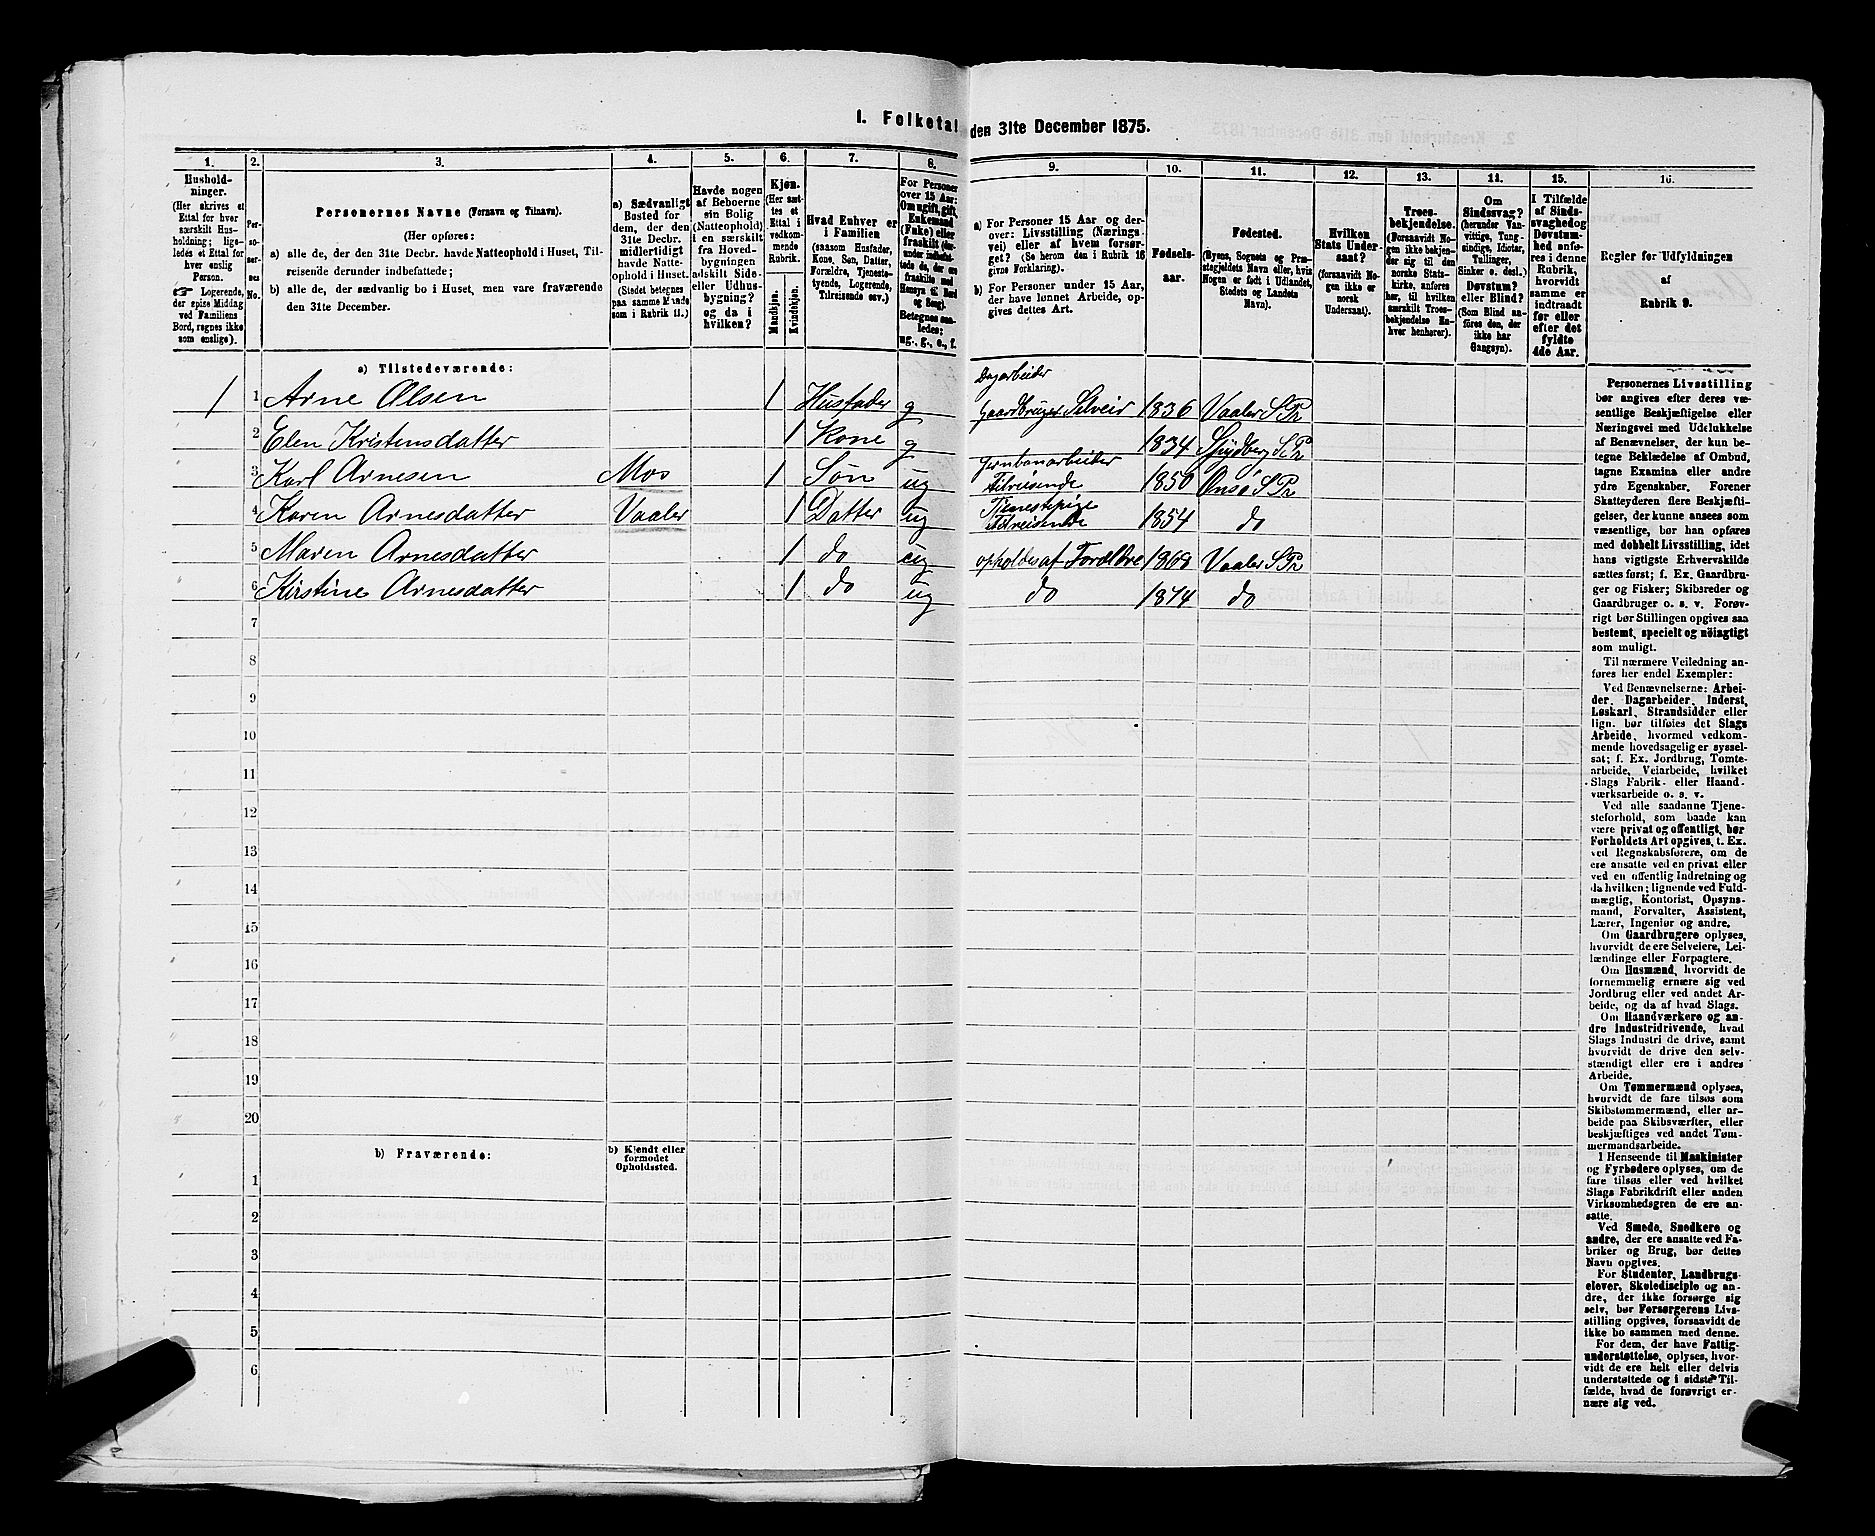 1. Folketal den 31te December 1875.
1. 2. 3. 4. 5. 6. 7. 8. 9. 10. 11. 12. 13. 14. 15. 16.
Hushold-
ninger.
(Her skrives et
Ettal for hver
særskilt Hus-
holdning; lige-
ledes et Ettal for
hver enslig
Person.
☛ Logerende,
der spise Middag
ved Familiens
Bord, regnes ikke
som enslige).
Per-
so-
ner-
nes
No.
Personernes Navne (Fornavn og Tilnavn).
(Her opføres:
a) alle de, der den 31te Decbr. havde Natteophold i Huset, Til-
reisende derunder indbefattede;
b) alle de, der sædvanlig bo i Huset, men vare fraværende
den 31te December.
a) Sædvanligt
Bosted for
dem, der den
31te Decbr.
midlertidigt
havde Natte-
ophold i Huset.
(Stedet betegnes
paa samme Maade
som i Rubrik 11.)
Havde nogen
af Beboerne
sin Bolig
(Natteophold)
i en særskilt
fra Hoved-
bygningen
adskilt Side-
eller Udhus-
bygning?
og da i
hvilken?
Kjøn.
(Her sæt-
tes et
Ettal i
vedkom-
mende
Rubrik.
Mandkjøn.
Kvindekjøn.
Hvad Enhver er
i Familien
(saasom Husfader,
Kone, Søn, Datter,
Forældre, Tjeneste-
tyende, Logerende,
Tilreisende osv.)
For Personer
over 15 Aar:
Om ugift, gift,
Enkemand
(Enke) eller
fraskilt (der-
under indbefat-
tede de, der ere
fraskilte med
Hensyn til Bord
og Seng).
Betegnes saa-
ledes:
ug., g., e., f.
a) For Personer 15 Aar og der-
over: Livsstilling (Nærings-
vei) eller af hvem forsør-
get? (Se herom den i Rubrik 16
givne Forklaring).
b) For Personer under 15 Aar,
der have lønnet Arbeide, op-
gives dettes Art.
Fødsels-
aar.
Fødested.
(Byens, Sognets og Præ-
stegjeldets Navn eller, hvis
Nogen er født i Udlandet,
Stedets og Landets
Navn).
Hvilken
Stats Under-
saat?
(forsaavidt No-
gen ikke er
norsk
Undersaat).
Troes-
bekjendelse.
(Forsaavidt No-
gen ikke bekjen-
der sig til den
norske Stats-
kirke, anføres
her, til hvilken
særskilt Troes-
bekjendelse En-
hver henhører).
Om
Sindssvag?
(herunder Van-
vittige, Tung-
sindige, Idioter,
Tullinger,
Sinker o. desl.)
Døvstum?
eller Blind?
(Som Blind an-
føres den, der
ikke har
Gangsyn).
I Tilfælde
af Sinds-
svaghed og
Døvstum-
hed anfø-
res i denne
Rubrik,
hvorvidt
samme er
indtraadt
før eller
efter det
fyldte
4de Aar.
Regler for Udfyldningen
af
Rubrik 9.
a) Tilstedeværende:
Dagarbeider
1 1 Arne Olsen 1 Husfader g Gaardbruger Selveir 1836 Vaaler S Pr
2 Elen Kristensdatter 1 Kone g 1834 Spydberg S Pr
Jernbanarbeider
3 Karl Arnesen Mos 1 Søn ug Tilreisende 1850 Onsø S Pr
Tjenestepige
4 Karen Arnesdatter Vaaler 1 Datter ug Tilreisende 1854 do
5 Maren Arnesdatter 1 do ug opholdes af Foreldre 1868 Vaaler S Pr
6 Kirstine Arnesdatter 1 do ug do 1874 do
7
8
9
10
11
12
13
14
15
16
17
18
19
20
b) Fraværende:
b) Kjendt eller
formodet
Opholdssted.
1
2
3
4
5
6
Personernes Livsstilling
bør angives efter deres væ-
sentlige Beskjæftigelse eller
Næringsvei med Udelukkelse
af Benævnelser, der kun be-
tegne Beklædelse af Ombud,
tagne Examina eller andre
ydre Egenskaber. Forener
Skatteyderen flere Beskjæfti-
gelser, der kunne ansees som
væsentlige, bør han opføres
med dobbelt Livsstilling, idet
hans vigtigste Erhvervskilde
sættes først; f. Ex. Gaardbru-
ger og Fisker; Skibsreder og
Gaardbruger o. s. v. Forøv-
rigt bør Stillingen opgives saa
bestemt, specielt og nöiagtigt
som muligt.
Til nærmere Veiledning an-
føres her endel Exempler:
Ved Benævnelserne: Arbei-
der, Dagarbeider, Inderst,
Løskarl, Strandsidder eller
lign. bør tilføies det Slags
Arbeide, hvormed vedkom-
mende hovedsagelig er syssel-
sat; f. Ex. Jordbrug, Tomte-
arbeide, Veiarbeide, hvilket
Slags Fabrik- eller Haand-
værksarbeide o. s. v.
Ved alle saadanne Tjene-
steforhold, som baade kan
være privat og offentligt, bør
Forholdets Art opgives, t. Ex.
ved Regnskabsførere, om de
ere ansatte ved en privat eller
ved en offentlig Indretning og
da hvilken; lignende ved Fuld-
mægtig, Kontorist, Opsyns-
mand, Forvalter, Assistent,
Lærer, Ingeniør og andre.
Om Gaardbrugere oplyses,
hvorvidt de ere Selveiere, Lei-
lændinge eller Forpagtere.
Om Husmænd, hvorvidt de
fornemmelig ernære sig ved
Jordbrug eller ved andet Ar-
beide, og da af hvad Slags.
Om Haandværkere og an-
dre Industridrivende, hvad
Slags Industri de drive, samt
hvorvidt de drive den selv-
stændigt eller ere i andres
Arbeide.
Om Tømmermænd oplyses,
hvorvidt de fare tilsøs som
Skibstømmermænd, eller ar-
beide paa Skibsværfter, eller
beskjæftiges ved andet Tøm-
mermandsarbeide.
I Henseende til Maskinister
og Fyrbødere oplyses, om de
fare tilsøs eller ved hvilket
Slags Fabrikdrift eller anden
Virksomhedsgren de ere an-
satte.
Ved Smede, Snedkere og
andre, der ere ansatte ved Fa-
briker og Brug, bør dettes
Navn opgives.
For Studenter, Landbrugs-
elever, Skoledisciple og an-
dre, der ikke forsørge sig
selv, bør Forsørgerens Livs-
stilling opgives, forsaavidt de
ikke bo sammen med denne.
For dem, der have Fattig-
understøttelse, oplyses, hvor-
vidt de ere helt eller delvis
understøttede og i sidste Til-
fælde, hvad de forøvrigt er-
nære sig ved.